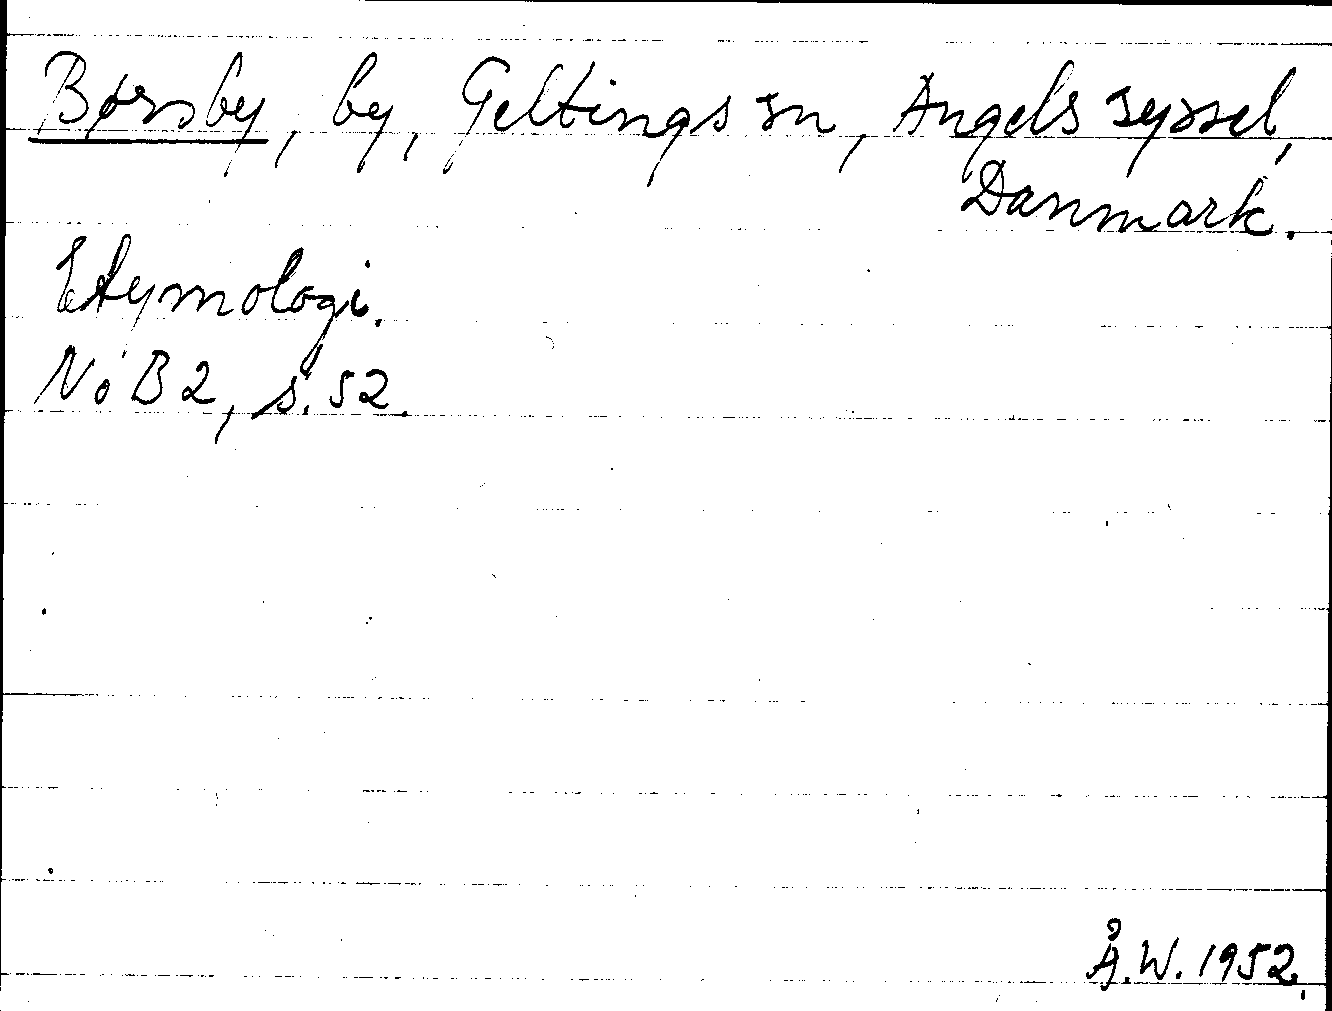 Børsby, by, Geltings sn, Angels syssel,
Danmark.
Etymologi.
NoB 2, s. 52.
Å.W. 1952.